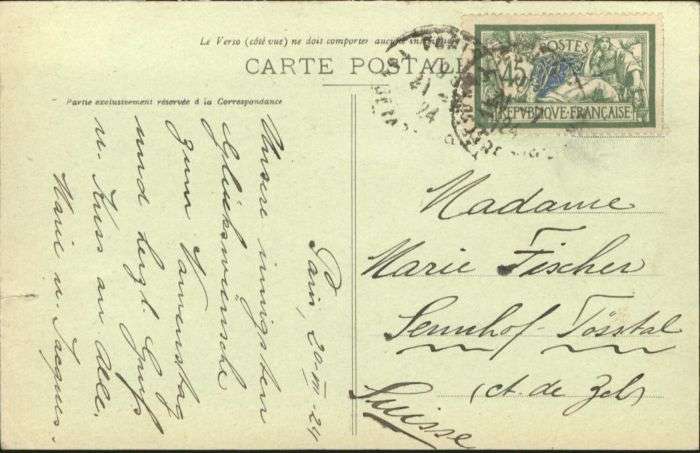 Le Verso (côté vue) ne doit comporter aucune
CARTE POSTALE
Partie exclusivement réservée à la Correspondance
POSTES
45
REPVBLIQUE·FRANÇAISE
24
Paris, 20 VII - 24
Unsere innigsten
Glückwünsche
zum Namenstag
und herzl. Gruß
u. Kuss an Alle.
Marie u. Jacques.
Madame
Marie Fischer
Sennhof-Tösstal
(ct. de Zch)
Suisse